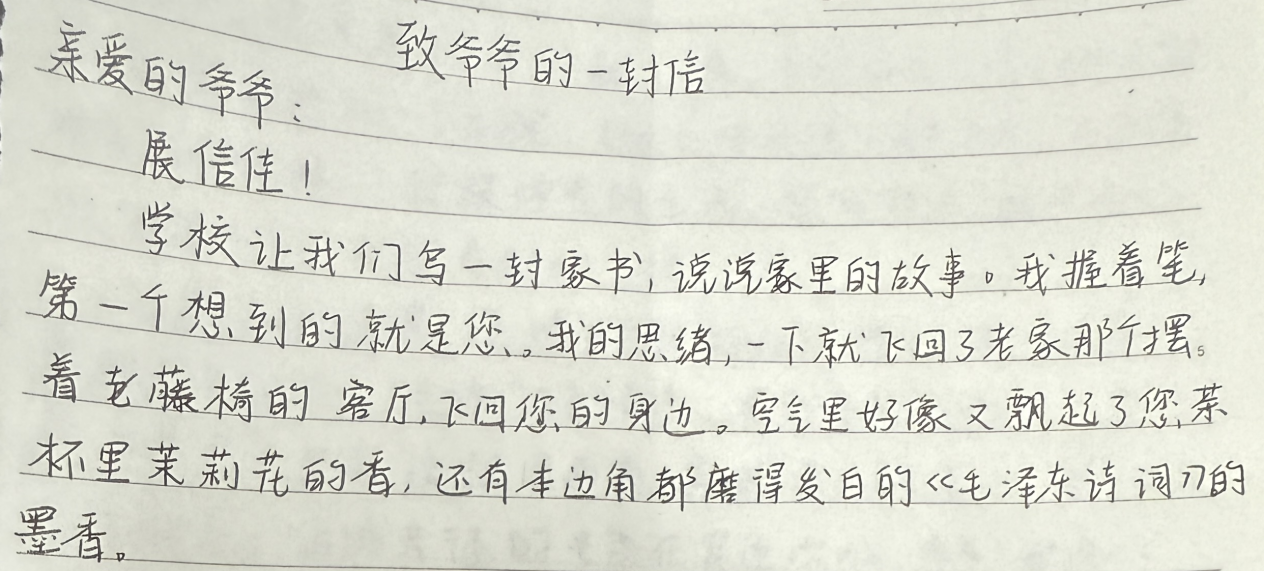 致爷爷的一封信
亲爱的爷爷：
展信佳！
学校让我们写一封家书，说说家里的故事。我握着笔，
第一个想到的就是您。我的思绪，一下就飞回了老家那个摆
着老藤椅的客厅，飞回您的身边。空气里好像又飘起了您茶
杯里茉莉花的香，还有本边角都磨得发白的《毛泽东诗词》的
墨香。